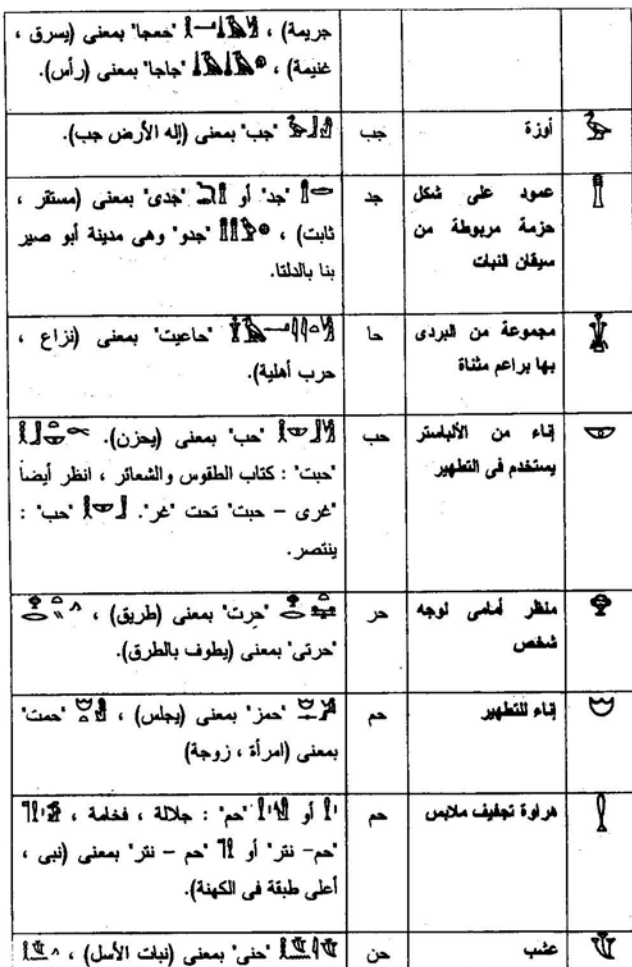 جريمة) ، "حعجا" بمعنى (يسرق ،
غنيمة) ، "جاجا" بمعنى (رأس).
أوزة
جب
"جب" بمعنى (إله الأرض جب).
عمود على شكل
حزمة مربوطة من
سيقان النبات
جد
"جد" أو "جدى" بمعنى (مستقر ،
ثابت) ، "جدو" وهى مدينة أبو صير
بنا بالدلتا.
مجموعة من البردى
بها براعم مثناة
حا
"حاعيت" بمعنى (نزاع ،
حرب أهلية).
إناء من الألباستر
يستخدم فى التطهير
حب
"حب" بمعنى (يحزن).
"حبت" : كتاب الطقوس والشعائر ، انظر أيضاً
"غرى – حبت" تحت "غر". "حب" :
ينتصر.
منظر أمامى لوجه
شخص
حر
"حرت" بمعنى (طريق) ،
"حرتى" بمعنى (يطوف بالطرق).
إناء للتطهير
حم
"حمز" بمعنى (يجلس) ، "حمت"
بمعنى (امرأة ، زوجة)
هراوة تجفيف ملابس
حم
أو "حم" : جلالة ، فخامة ،
"حم– نتر" أو "حم – نتر" بمعنى (نبى ،
أعلى طبقة فى الكهنة).
عشب
حن
"حنى" بمعنى (نبات الأسل) ،